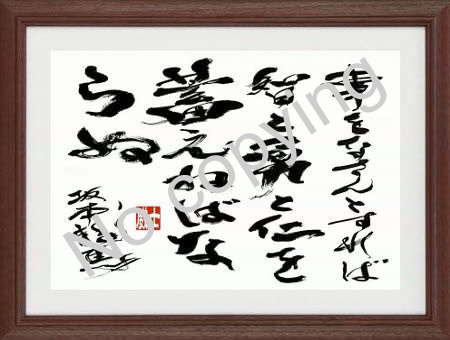 事をなさんとすれば
智と勇と仁を
蓄えねばな
らぬ
坂本龍馬
No copying